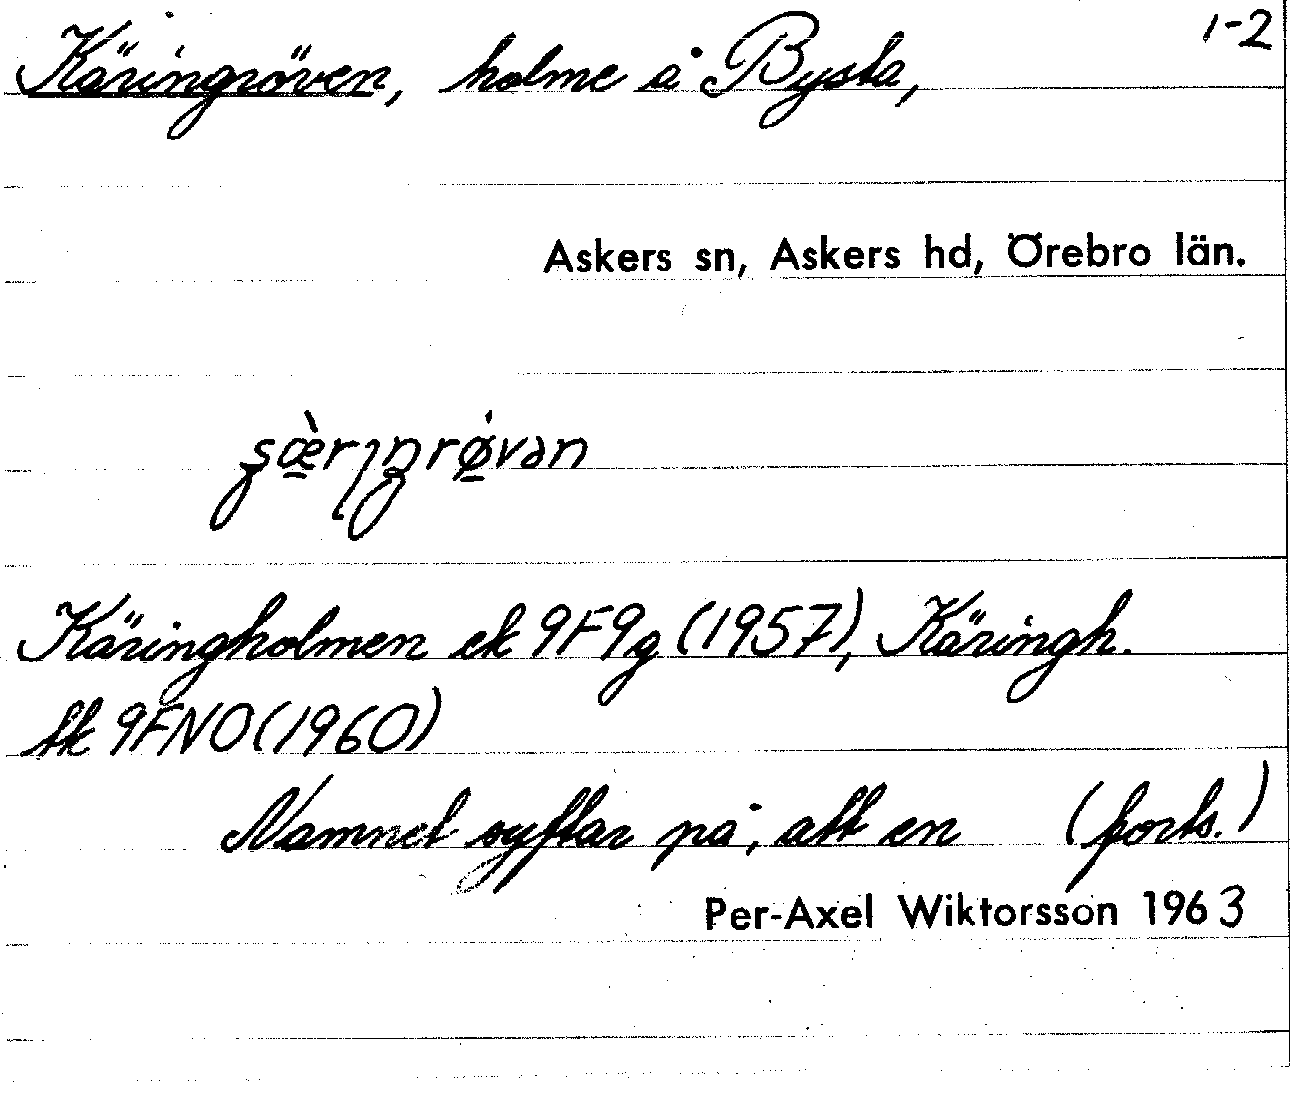 1-2
Käringröven, holme å Bysta,
Askers sn, Askers hd, Örebro län.
Käringholmen ek 9F9g (1957), Käringh.
tk 9FNO (1960)
Namnet syftar på, att en (forts.)
Per-Axel Wiktorsson 1963